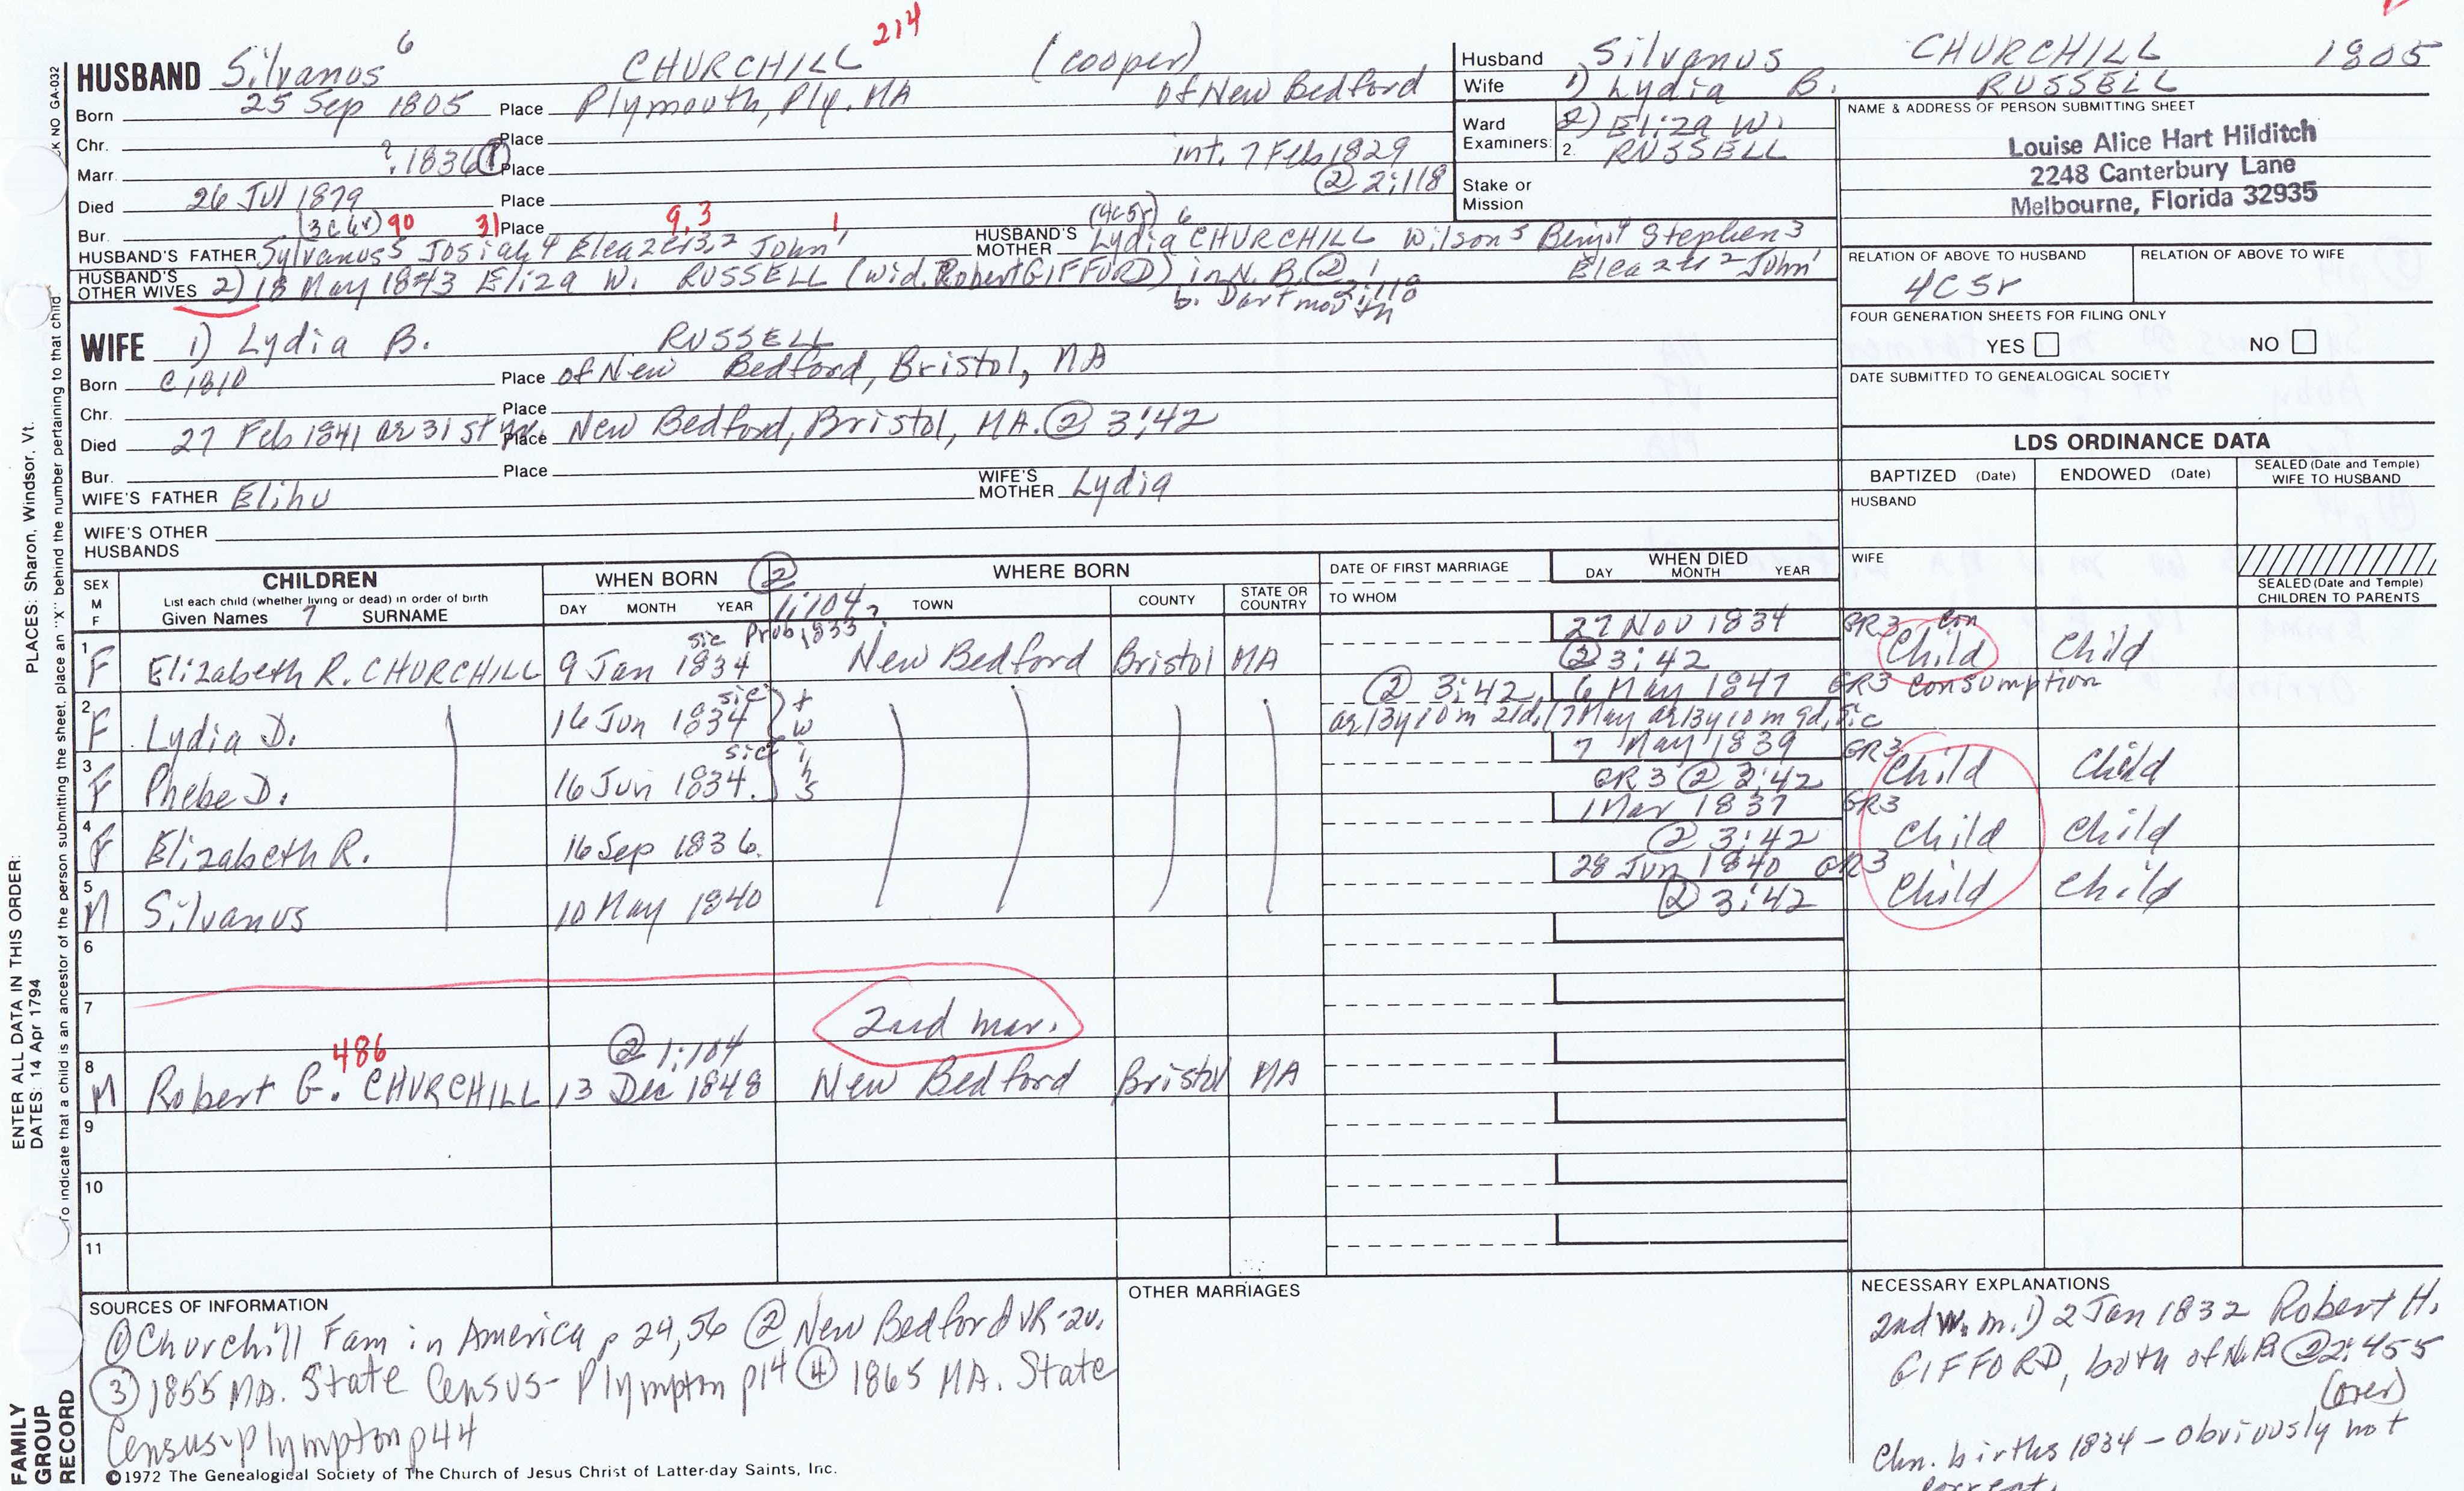 HUSBAND Silvanus 6 CHURCHILL 214 (cooper)
Born 25 Sep 1805 Place Plymouth, Ply. MA of New Bedford
Chr. Place
Marr. ?.1836 ① Place int. 7 Feb 1829
② 2:118
Died 26 Jul 1879 Place
Bur. (3C6r) 90 31 Place 9,3 1 (4C5r) 6
HUSBAND'S FATHER Sylvanus5 Josiah4 Eleazer3,2 John1 HUSBAND'S MOTHER Lydia CHURCHILL Wilson5 Benj4 Stephen3
Eleazer2 John1
HUSBAND'S OTHER WIVES 2) 18 May 1843 Eliza W. RUSSELL (wid. Robert GIFFORD) in N. B. ② 2:118
b. Dartmouth
Husband Silvanus CHURCHILL 1805
Wife 1) Lydia B. RUSSELL
Ward
Examiners: 2) Eliza W.
2. RUSSELL
Stake or
Mission
NAME & ADDRESS OF PERSON SUBMITTING SHEET
Louise Alice Hart Hilditch
2248 Canterbury Lane
Melbourne, Florida 32935
RELATION OF ABOVE TO HUSBAND RELATION OF ABOVE TO WIFE
4C5r
FOUR GENERATION SHEETS FOR FILING ONLY
YES NO
DATE SUBMITTED TO GENEALOGICAL SOCIETY
WIFE 1) Lydia B. RUSSELL
Born c1810 Place of New Bedford, Bristol, MA
Chr. Place
Died 27 Feb 1841 ae 31st yr. Place New Bedford, Bristol, MA. ② 3:42
Bur. Place
WIFE'S FATHER Elihu WIFE'S MOTHER Lydia
WIFE'S OTHER
HUSBANDS
LDS ORDINANCE DATA
BAPTIZED (Date) ENDOWED (Date) SEALED (Date and Temple)
WIFE TO HUSBAND
HUSBAND
WIFE
SEALED (Date and Temple)
CHILDREN TO PARENTS
SEX
M
F
CHILDREN
List each child (whether living or dead) in order of birth
Given Names 7 SURNAME
WHEN BORN ②
DAY MONTH YEAR 1:104
WHERE BORN
TOWN COUNTY STATE OR COUNTRY
DATE OF FIRST MARRIAGE
TO WHOM
WHEN DIED
DAY MONTH YEAR
sic Prob 1833 27 Nov 1834 GR3 Con
1 F Elizabeth R. CHURCHILL 9 Jan 1834 New Bedford Bristol MA ② 3:42 Child Child
sic ② 3:42 6 May 1847 GR3 consumption
2 F Lydia D. 16 Jun 1834 twins ae 13y 10m 21d, (7 May ae 13y 10m 9d, sic
sic 7 May 1839 GR3
3 F Phebe D. 16 Jun 1834. GR3 ② 3:42 Child Child
1 Mar 1837 GR3
4 F Elizabeth R. 16 Sep 1836. ② 3:42 Child Child
28 Jun 1840 GR3
5 M Silvanus 10 May 1840 ② 3:42 Child Child
6
7 2nd mar.
486 ② 1:104
8 M Robert G. CHURCHILL 13 Dec 1848 New Bedford Bristol MA
9
10
11
SOURCES OF INFORMATION
① Churchill Fam in America p 29,56 ② New Bedford VR-2v.
③ 1855 MA. State Census- Plympton p14 ④ 1865 MA. State
Census-Plympton p44
OTHER MARRIAGES
NECESSARY EXPLANATIONS
2nd w. m. 1) 2 Jan 1832 Robert H.
GIFFORD, both of N.B ② 2:455
(over)
Chn. births 1834 - obviously not
correct.
©1972 The Genealogical Society of The Church of Jesus Christ of Latter-day Saints, Inc.
FAMILY
GROUP
RECORD
ENTER ALL DATA IN THIS ORDER:
DATES: 14 Apr 1794
PLACES: Sharon, Windsor, Vt.
To indicate that a child is an ancestor of the person submitting the sheet, place an "X" behind the number pertaining to that child
CK NO GA-032